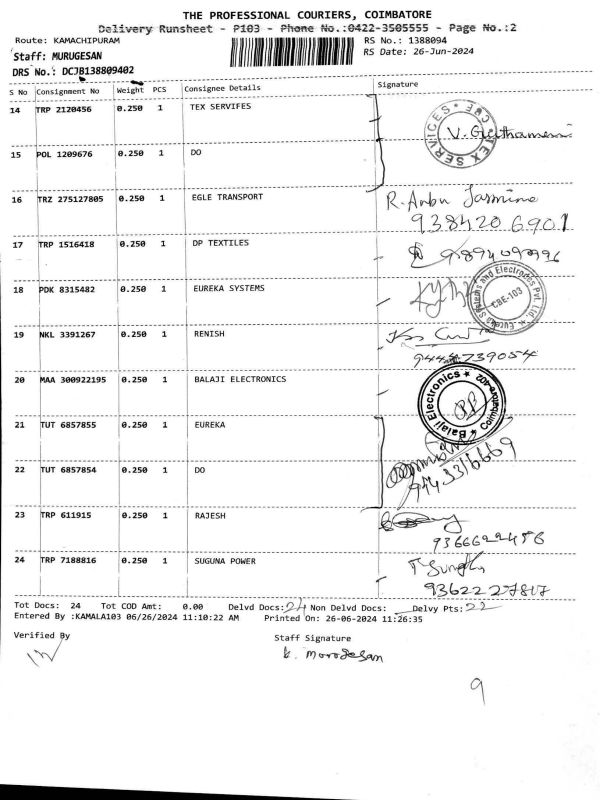 THE PROFESSIONAL COURIERS, COIMBATORE
Delivery Runsheet - P103 - Phone No.:0422-3505555 - Page No.:2
Route: KAMACHIPURAM
RS No.: 1388094
Staff: MURUGESAN
RS Date: 26-Jun-2024
DRS No.: DCJB138809402
S No Consignment No Weight PCS Consignee Details Signature
14 TRP 2120456 0.250 1 TEX SERVIFES
TEX SERVICES ★ CBE ★
V. Geethamani
15 POL 1209676 0.250 1 DO
16 TRZ 275127805 0.250 1 EGLE TRANSPORT R. Anbu Jasmine
938420 6901
17 TRP 1516418 0.250 1 DP TEXTILES
18 PDK 8315482 0.250 1 EUREKA SYSTEMS
Eureka Systems and Electrodes Pvt. Ltd.
CBE-103
19 NKL 3391267 0.250 1 RENISH
9444739054
20 MAA 300922195 0.250 1 BALAJI ELECTRONICS
Balaji Electronics ★ Coimbatore-402 ★
21 TUT 6857855 0.250 1 EUREKA
22 TUT 6857854 0.250 1 DO
9443316669
23 TRP 611915 0.250 1 RAJESH
9366622456
24 TRP 7188816 0.250 1 SUGUNA POWER
9362227817
Tot Docs: 24 Tot COD Amt: 0.00 Delvd Docs: 24 Non Delvd Docs: Delvy Pts: 22
Entered By :KAMALA103 06/26/2024 11:10:22 AM Printed On: 26-06-2024 11:26:35
Verified By Staff Signature
k. Morogesan
9